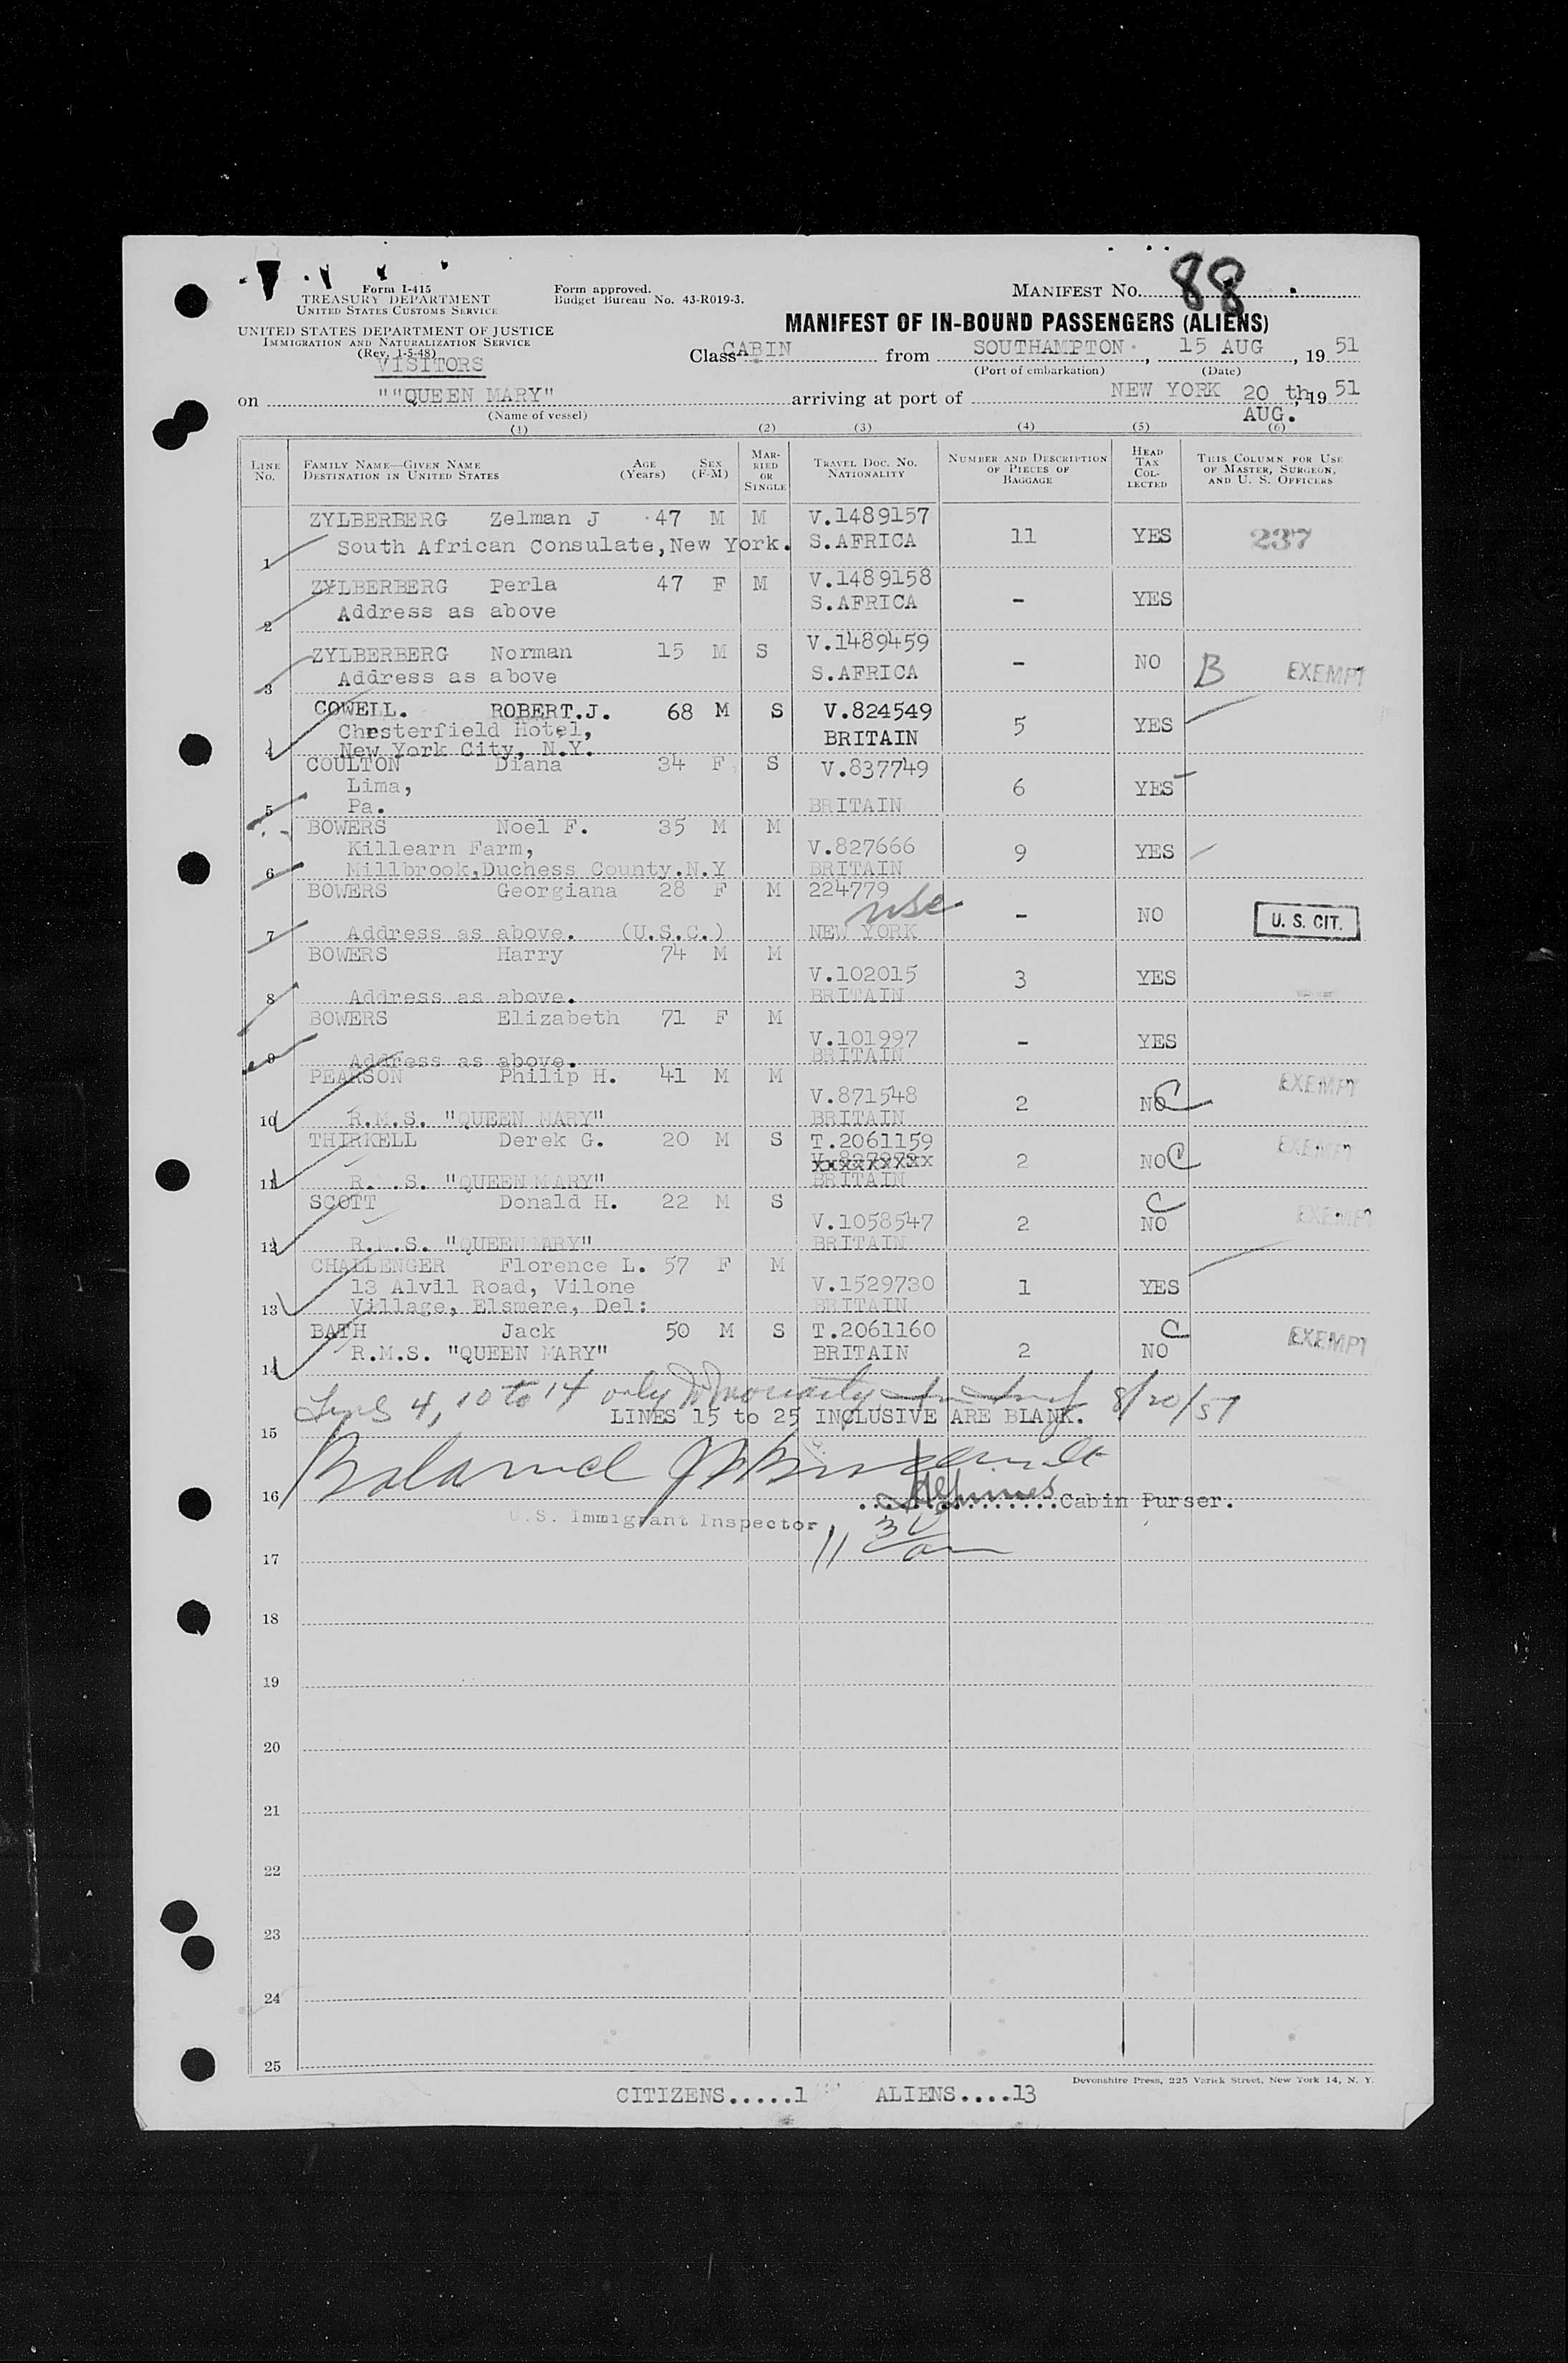 88
Form I-415
TREASURY DEPARTMENT
UNITED STATES CUSTOMS SERVICE
Form approved.
Budget Bureau No. 43-R019-3.
MANIFEST NO.
UNITED STATES DEPARTMENT OF JUSTICE
IMMIGRATION AND NATURALIZATION SERVICE
(Rev. 1-5-48)
VISITORS
MANIFEST OF IN-BOUND PASSENGERS (ALIENS)
Class CABIN from SOUTHAMPTON, 15 AUG, 19 51
(Port of embarkation) (Date)
on ""QUEEN MARY" arriving at port of NEW YORK 20 th, 19 51
AUG.
(Name of vessel)
(1) (2) (3) (4) (5) (6)
LINE NO.
FAMILY NAME—GIVEN NAME
DESTINATION IN UNITED STATES
AGE (Years)
SEX (F-M)
MARRIED OR SINGLE
TRAVEL DOC. NO.
NATIONALITY
NUMBER AND DESCRIPTION OF PIECES OF BAGGAGE
HEAD TAX COLLECTED
THIS COLUMN FOR USE OF MASTER, SURGEON, AND U. S. OFFICERS
ZYLBERBERG Zelman J 47 M M V.1489157
1 South African Consulate, New York. S.AFRICA 11 YES 237
ZYLBERBERG Perla 47 F M V.1489158
2 Address as above S.AFRICA - YES
ZYLBERBERG Norman 15 M S V.1489459
3 Address as above S.AFRICA - NO B EXEMPT
COWELL. ROBERT.J. 68 M S V.824549
Chesterfield Hotel, BRITAIN 5 YES
4 New York City, N.Y.
COULTON Diana 34 F S V.837749
Lima, 6 YES
5 Pa. BRITAIN
BOWERS Noel F. 35 M M
Killearn Farm, V.827666 9 YES
6 Millbrook,Duchess County.N.Y BRITAIN
BOWERS Georgiana 28 F M 224779
usc - NO U. S. CIT.
7 Address as above. (U.S.C.) NEW YORK
BOWERS Harry 74 M M
V.102015 3 YES
8 Address as above. BRITAIN
BOWERS Elizabeth 71 F M
V.101997 - YES
9 Address as above. BRITAIN
PEARSON Philip H. 41 M M EXEMPT
V.871548 2 NO C
10 R.M.S. "QUEEN MARY" BRITAIN
THIRKELL Derek G. 20 M S T.2061159 EXEMPT
xxxxxxxxx 2 NO C
11 R.M.S. "QUEEN MARY" BRITAIN
SCOTT Donald H. 22 M S C EXEMPT
V.1058547 2 NO
12 R.M.S. "QUEEN MARY" BRITAIN
CHALLENGER Florence L. 57 F M
13 Alvil Road, Vilone V.1529730 1 YES
13 Village, Elsmere, Del: BRITAIN
BATH Jack 50 M S T.2061160 C EXEMPT
14 R.M.S. "QUEEN MARY" BRITAIN 2 NO
Lines 4, 10 to 14 only 8/20/51
LINES 15 to 25 INCLUSIVE ARE BLANK.
15
16 Cabin Purser.
U.S. Immigrant Inspector
11 30 am
17
18
19
20
21
22
23
24
25
Devonshire Press, 225 Varick Street, New York 14, N. Y.
CITIZENS.....1 ALIENS....13